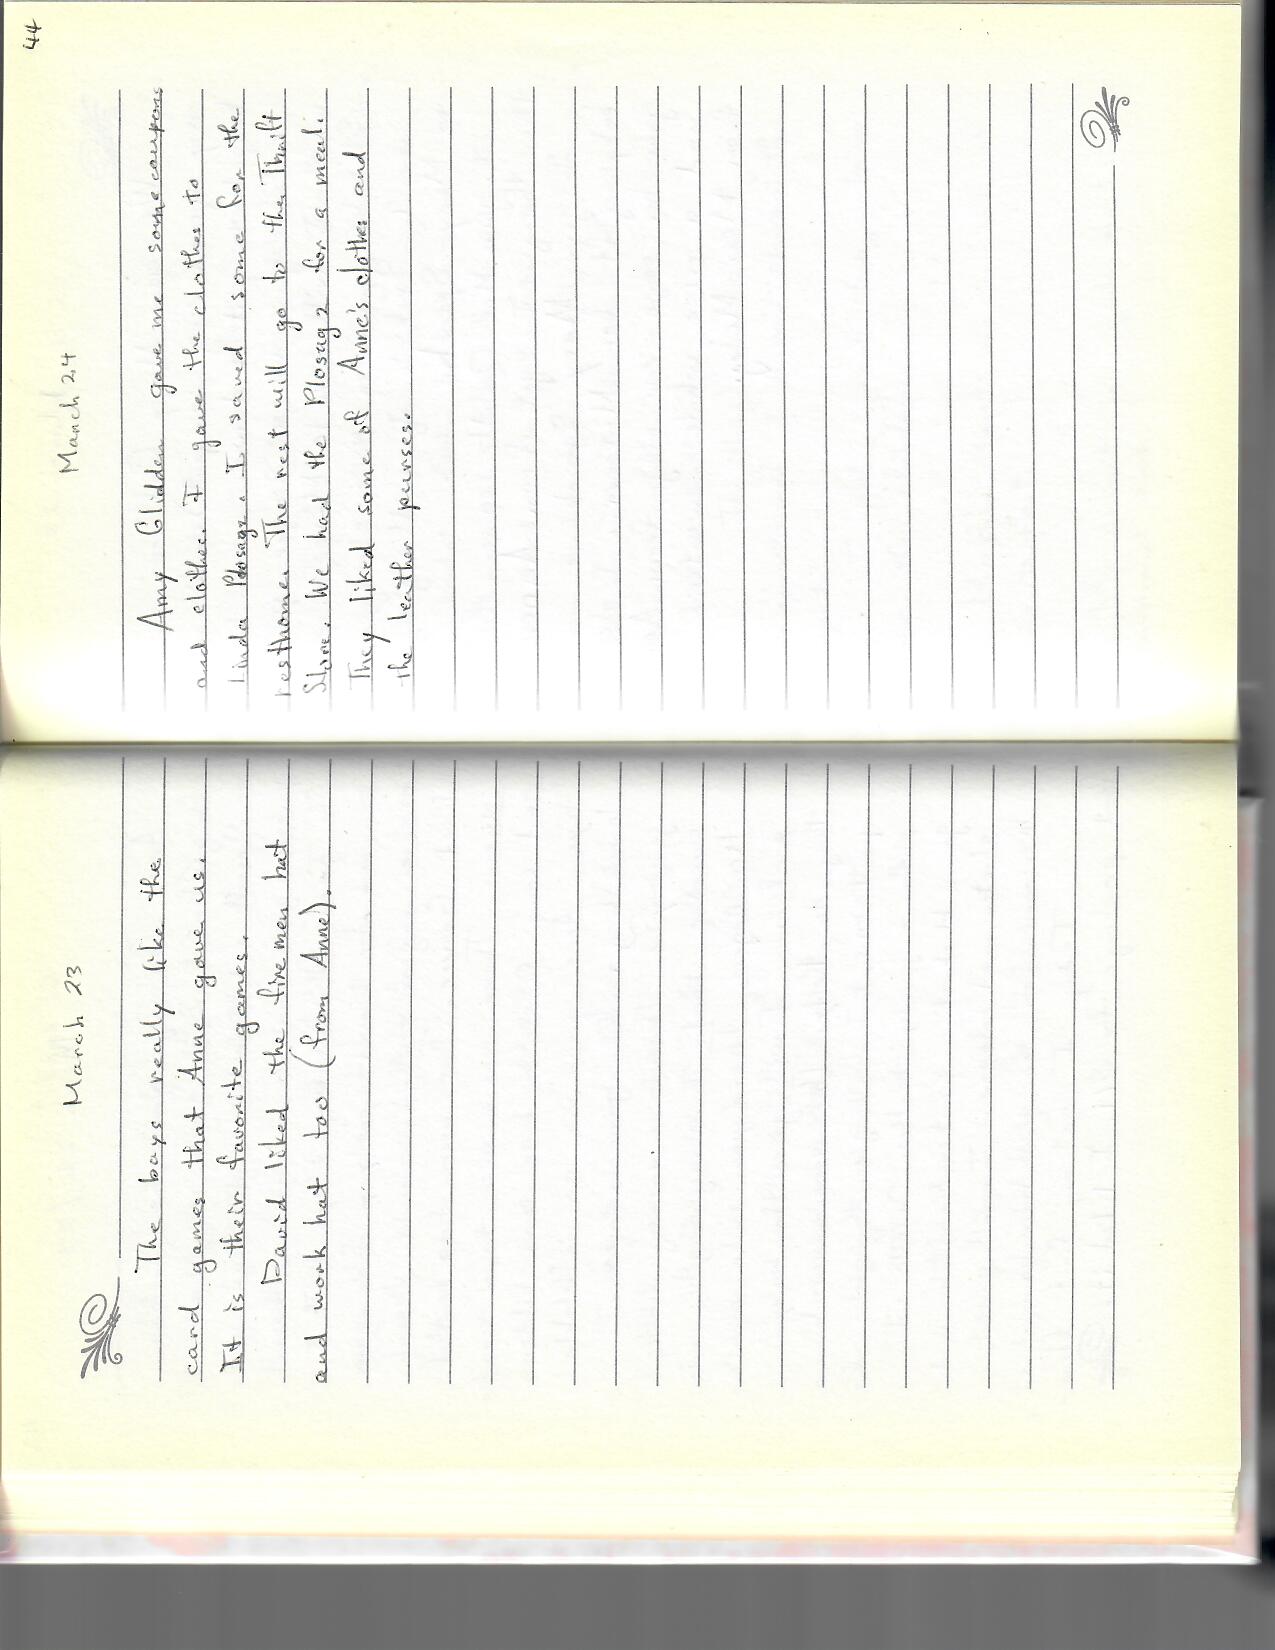 March 23
The boys really like the
card games that Anne gave us.
It is their favorite games.
David liked the firemen hat
and work hat too (from Anne).
44
March 24
Amy Glidden gave me some coupons
and clothes. I gave the clothes to
Linda Plosayz. I saved some for the
resthome. The rest will go to the Thrift
Store. We had the Plosayz for a meal.
They liked some of Anne's clothes and
the leather purses.